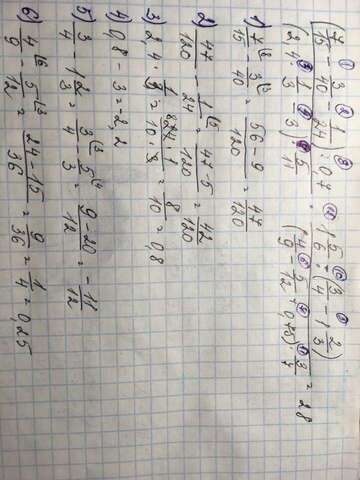 (7/15 - 3/40 - 1/24) : 0,7 · 1 5/6 : (3/4 - 1 2/3)
(2,4 · 1/3 - 3) · 5/11 (4/9 - 5/12 + 0,75) = 2,8
1) 7/15 - 3/40 = 56-9/120 = 47/120
2) 47/120 - 1/24 = 47-5/120 = 42/120
3) 2,4 · 1/3 = 24·1/10·3 = 8/10 = 0,8
4) 0,8 - 3 = -2,2
5) 3/4 - 1 2/3 = 3/4 - 5/3 = 9-20/12 = -11/12
6) 4/9 - 5/12 = 24-15/36 = 9/36 = 1/4 = 0,25